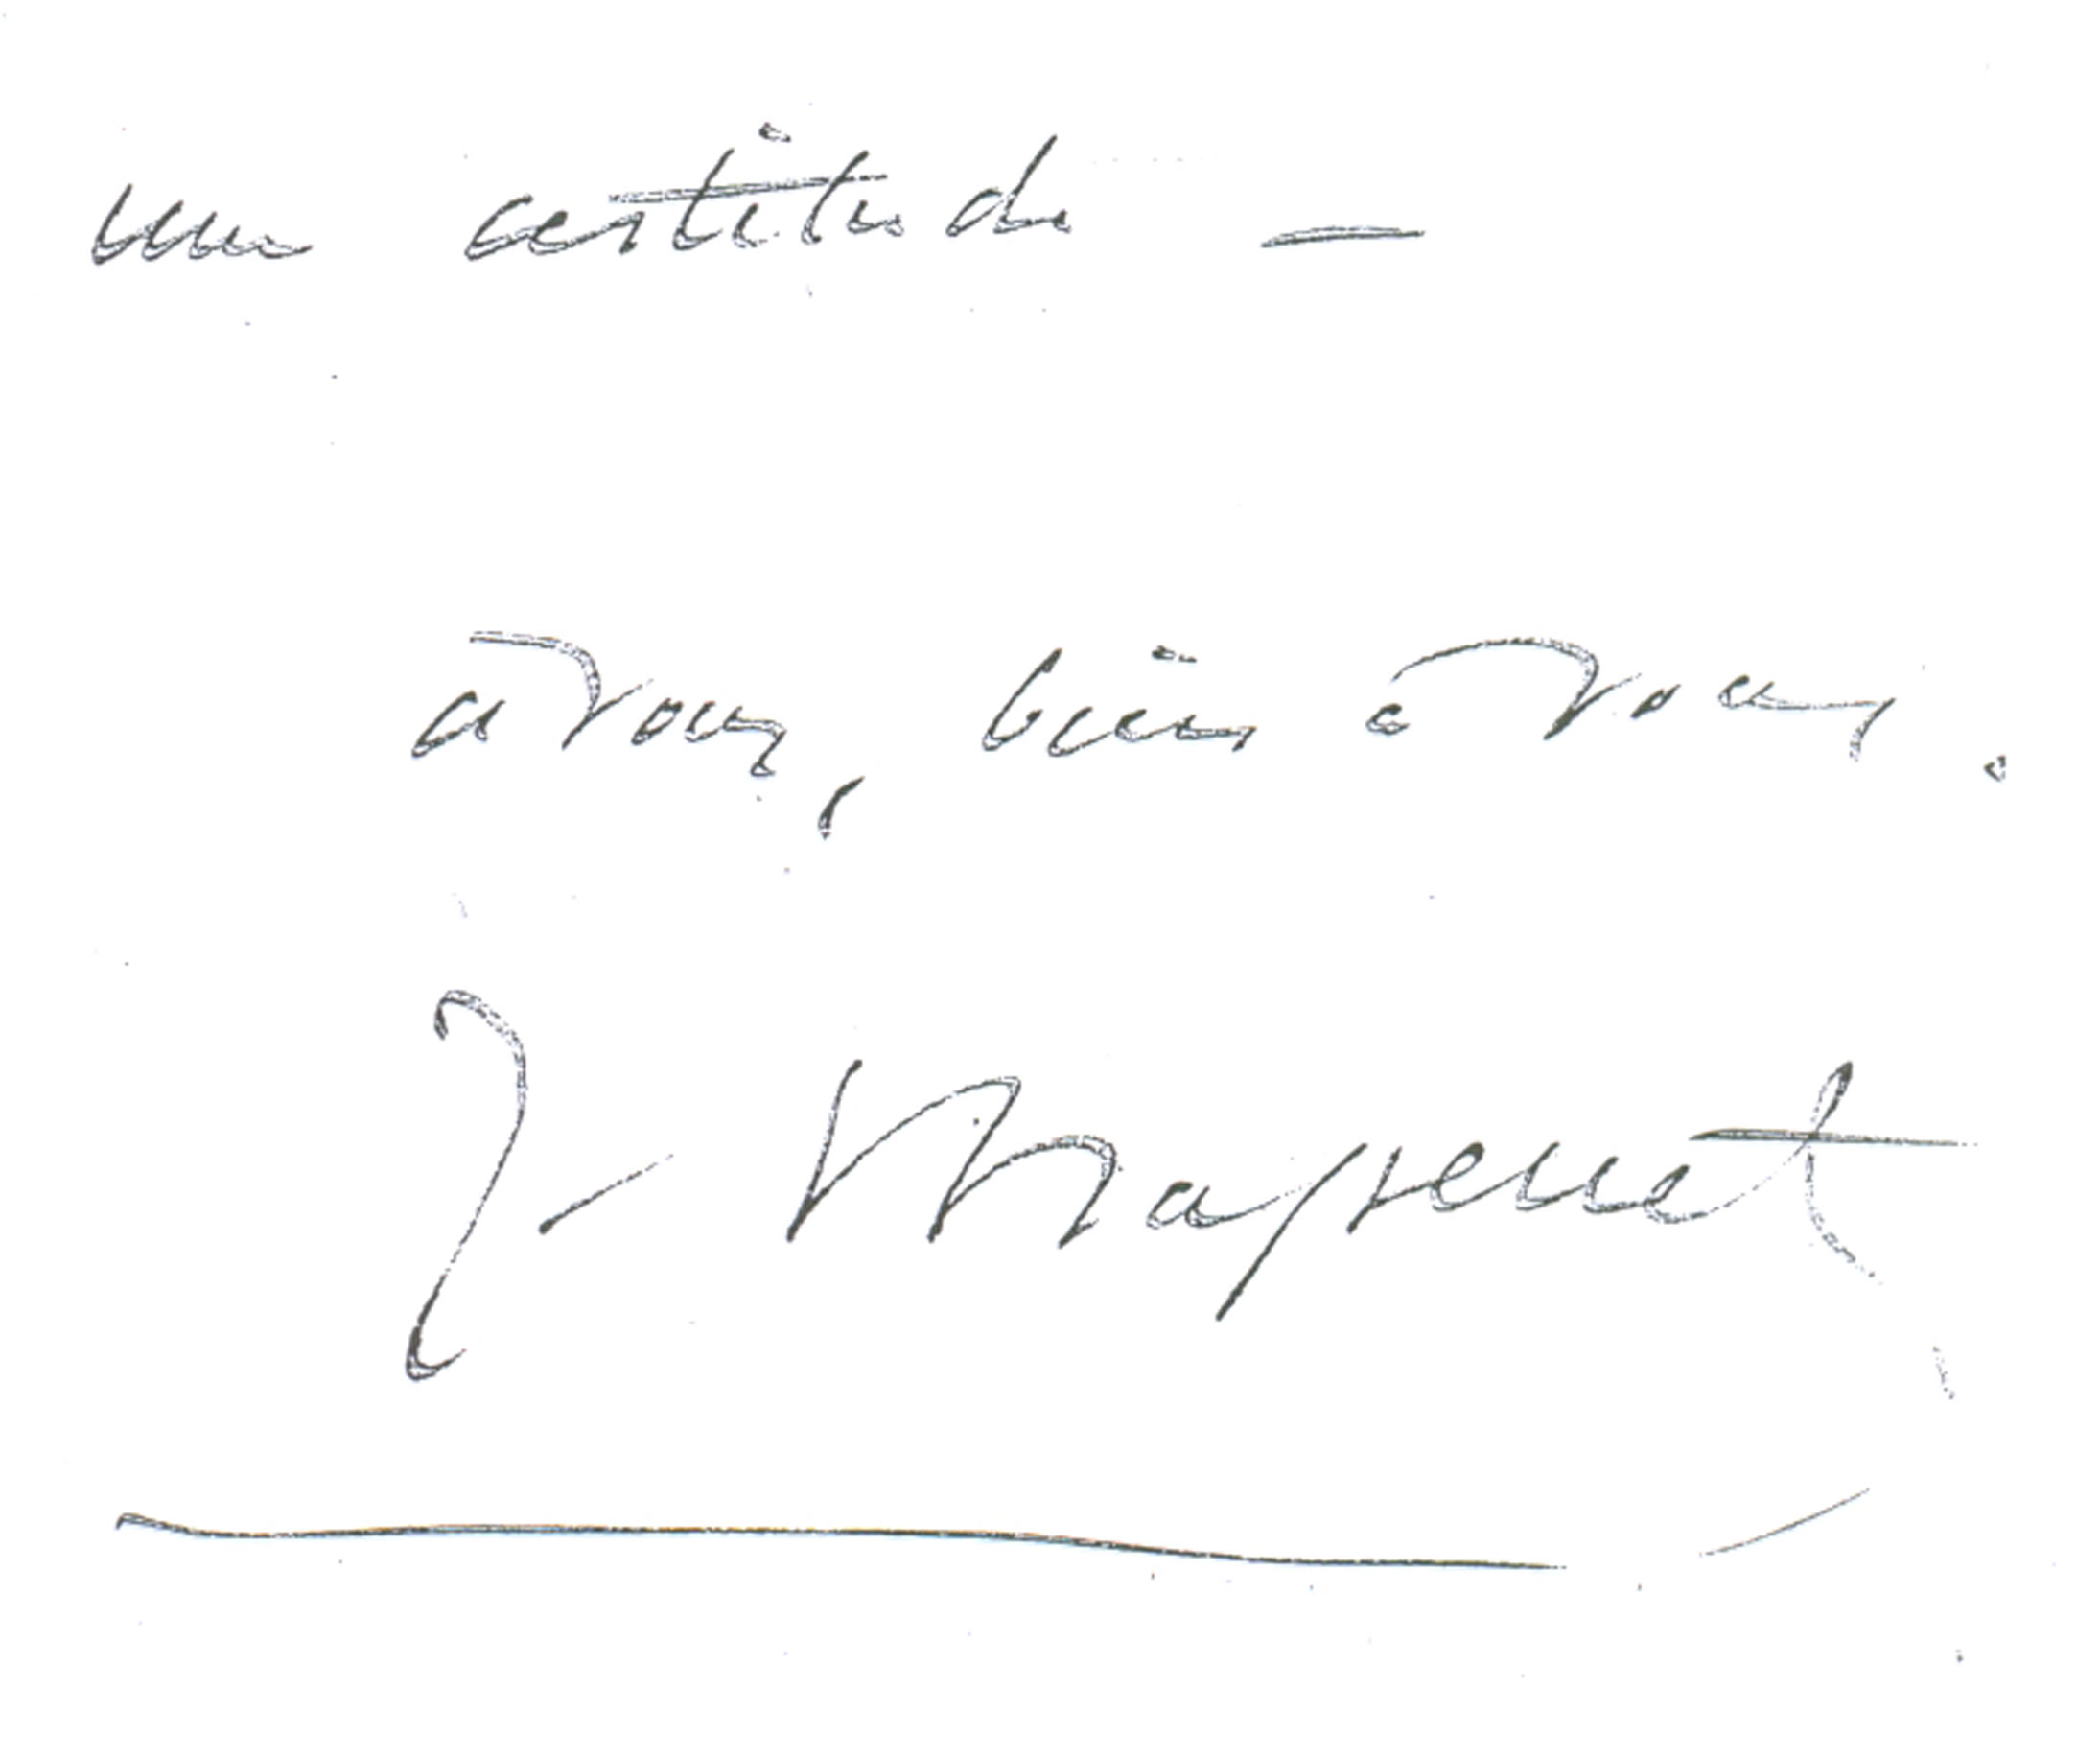 une certitude —
à vous, bien à vous.
J- Mapenet